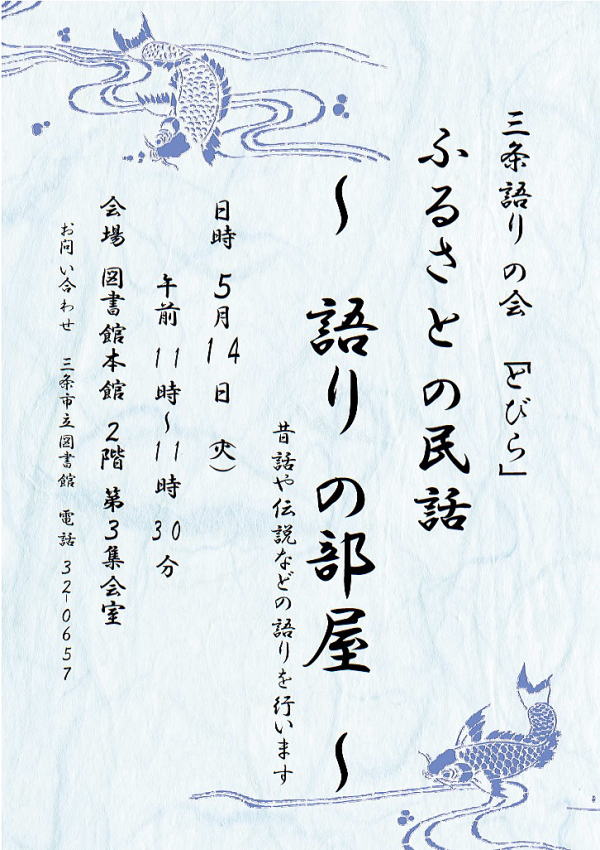 三条語りの会 『とびら』
ふるさとの民話
～ 語りの部屋 ～
昔話や伝説などの語りを行います
日時 5月14日 (火)
午前11時～11時30分
会場 図書館本館 2階 第3集会室
お問い合わせ 三条市立図書館 電話 32-0657